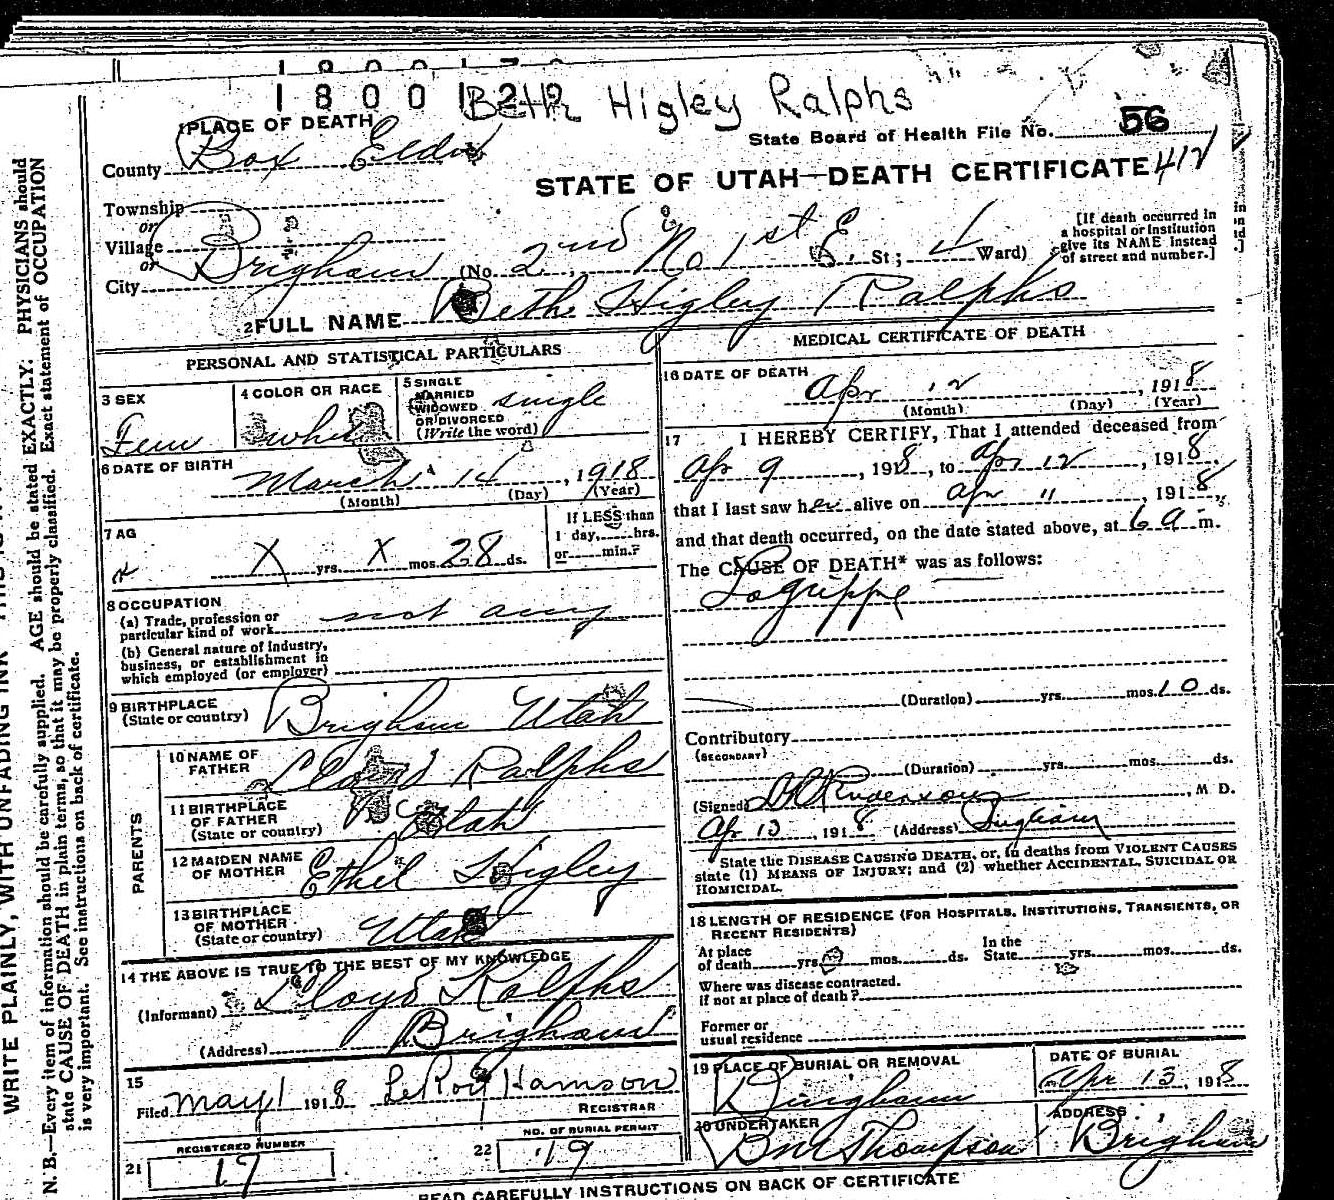 18001212
Beth Higley Ralphs
1 PLACE OF DEATH
State Board of Health File No. 56
County Box Elder
STATE OF UTAH—DEATH CERTIFICATE 412
Township
or
Village
or
City Brigham (No. 2nd No 1st E. St; 4 Ward)
[If death occurred in
a hospital or institution
give its NAME instead
of street and number.]
2 FULL NAME Beth Higley Ralphs
PERSONAL AND STATISTICAL PARTICULARS
3 SEX
Fem
4 COLOR OR RACE
white
5 SINGLE
MARRIED
WIDOWED
OR DIVORCED
(Write the word)
single
6 DATE OF BIRTH
March 14, 1918
(Month) (Day) (Year)
7 AGE
X yrs. X mos. 28 ds.
If LESS than
1 day, hrs.
or min.?
8 OCCUPATION
(a) Trade, profession or
particular kind of work not any
(b) General nature of industry,
business, or establishment in
which employed (or employer)
9 BIRTHPLACE
(State or country) Brigham Utah
PARENTS
10 NAME OF
FATHER Lloyd Ralphs
11 BIRTHPLACE
OF FATHER
(State or country) Utah
12 MAIDEN NAME
OF MOTHER Ethel Higley
13 BIRTHPLACE
OF MOTHER
(State or country) Utah
14 THE ABOVE IS TRUE TO THE BEST OF MY KNOWLEDGE
(Informant) Lloyd Ralphs
(Address) Brigham
15
Filed May 1 1918 LeRoy Hamson
REGISTRAR
REGISTERED NUMBER
21 17
NO. OF BURIAL PERMIT
22 19
MEDICAL CERTIFICATE OF DEATH
16 DATE OF DEATH
Apr 12, 1918
(Month) (Day) (Year)
17 I HEREBY CERTIFY, That I attended deceased from
Apr 9, 1918, to Apr 12, 1918,
that I last saw her alive on Apr 11, 1918,
and that death occurred, on the date stated above, at 6 a m.
The CAUSE OF DEATH* was as follows:
Lagrippe
(Duration) yrs. mos. 10 ds.
Contributory
(SECONDARY)
(Duration) yrs. mos. ds.
(Signed) , M D.
Apr 13, 1918 (Address) Brigham
State the DISEASE CAUSING DEATH, or, in deaths from VIOLENT CAUSES
state (1) MEANS OF INJURY; and (2) whether ACCIDENTAL, SUICIDAL OR
HOMICIDAL.
18 LENGTH OF RESIDENCE (FOR HOSPITALS, INSTITUTIONS, TRANSIENTS, OR
RECENT RESIDENTS)
At place
of death yrs. mos. ds.
In the
State yrs. mos. ds.
Where was disease contracted.
if not at place of death?
Former or
usual residence
19 PLACE OF BURIAL OR REMOVAL
Brigham
DATE OF BURIAL
Apr 13, 1918
20 UNDERTAKER
B M Thompson
ADDRESS
Brigham
READ CAREFULLY INSTRUCTIONS ON BACK OF CERTIFICATE
WRITE PLAINLY, WITH UNFADING INK
N. B.—Every item of information should be carefully supplied. AGE should be stated EXACTLY. PHYSICIANS should
state CAUSE OF DEATH in plain terms, so that it may be properly classified. Exact statement of OCCUPATION
is very important. See instructions on back of certificate.